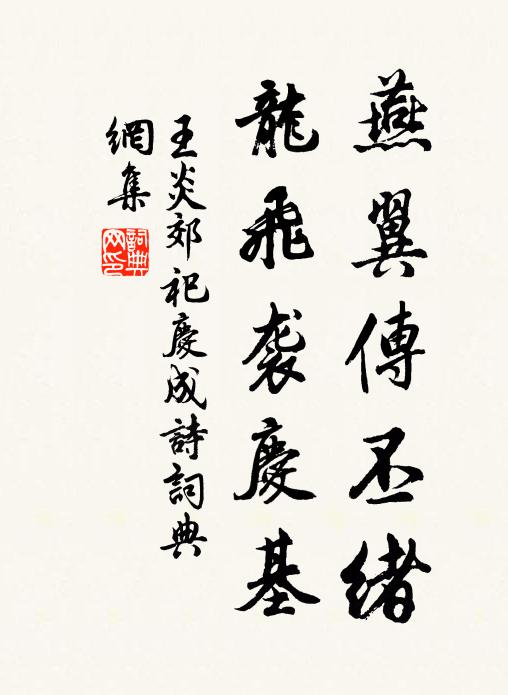 燕翼傳丕緒
龍飛袭慶基
王炎郊祀慶成詩詞典
網集
詞典网印